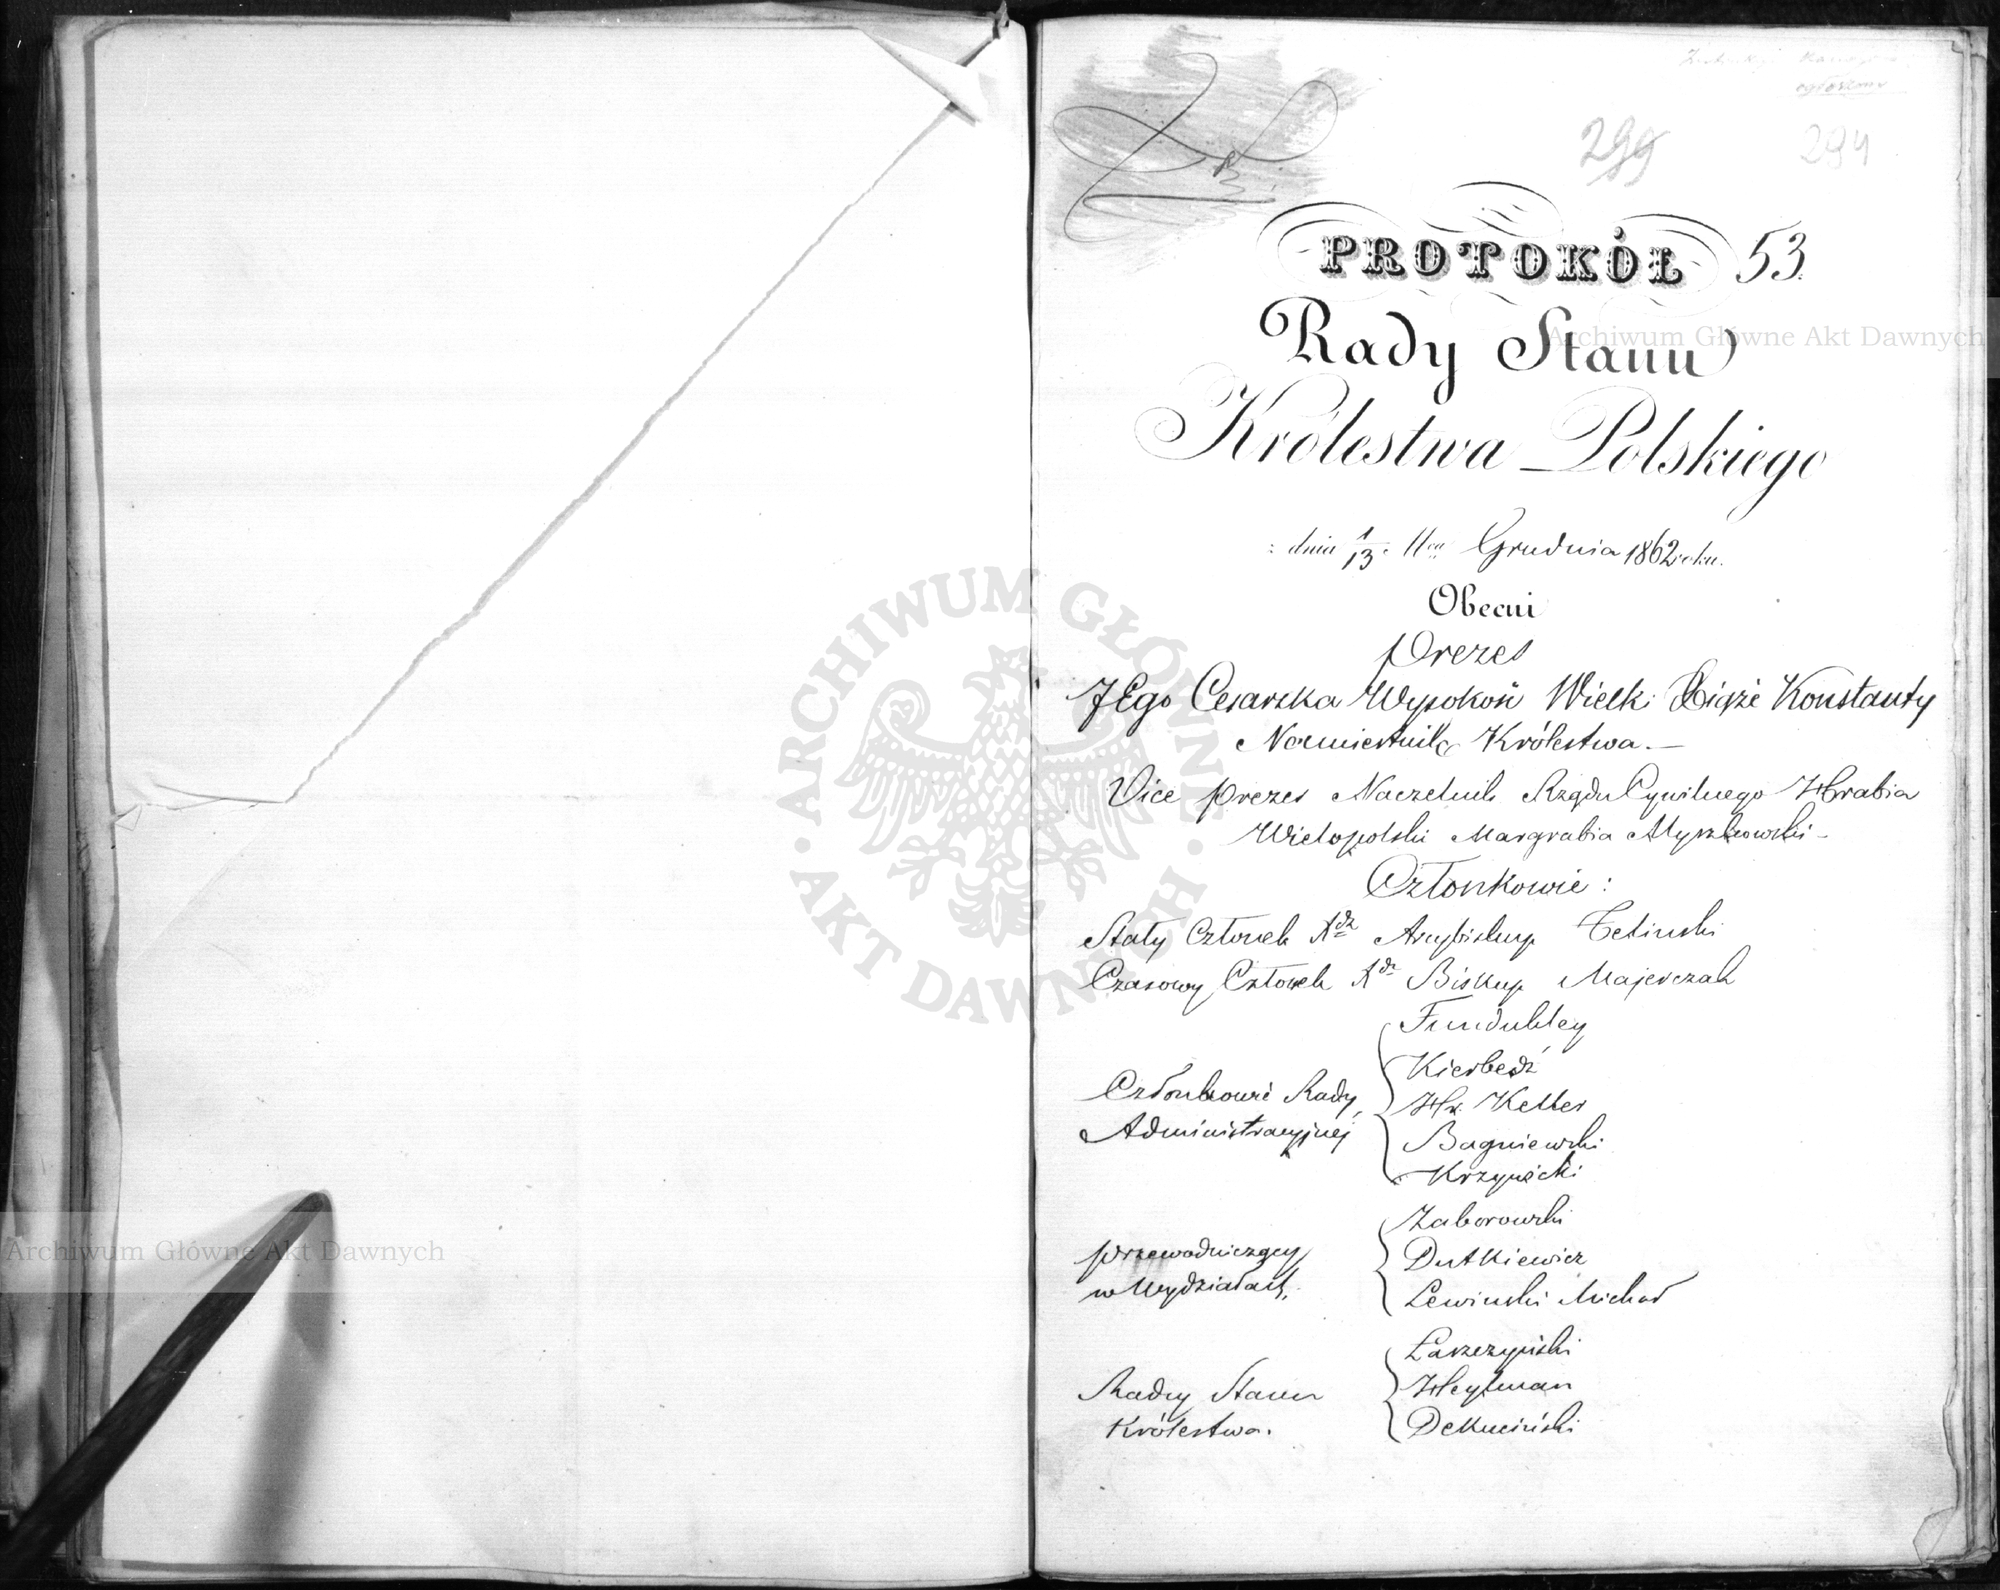 ogłoszony
299
294
PROTOKÓŁ 53.
Rady Stanu
Królestwa Polskiego
dnia 1/13. Grudnia 1862 roku.
Obecni
Prezes
JEgo Cesarska Wysokość Wielki Xiąże Konstanty
Namiestnik Królestwa.—
Vice Prezes Naczelnik Rządu Cywilnego Hrabia
Wielopolski Margrabia Myszkowski—
Członkowie:
Stały Członek Xdz Arcybiskup Feliński
Czasowy Członek Xdz Biskup Majerczak
Fundukley
Kierbedź
Członkowie Rady Hr. Keller
Administracyjnej Bagniewski
Krzywicki
Zaborowski
Przewodniczący Dutkiewicz
w Wydziałach. Lewiński Michał
Łaszczyński
Radcy Stanu Heylman
Królestwa. Dekuciński
ARCHIWUM GŁÓWNE AKT DAWNYCH
Archiwum Główne Akt Dawnych
Archiwum Główne Akt Dawnych